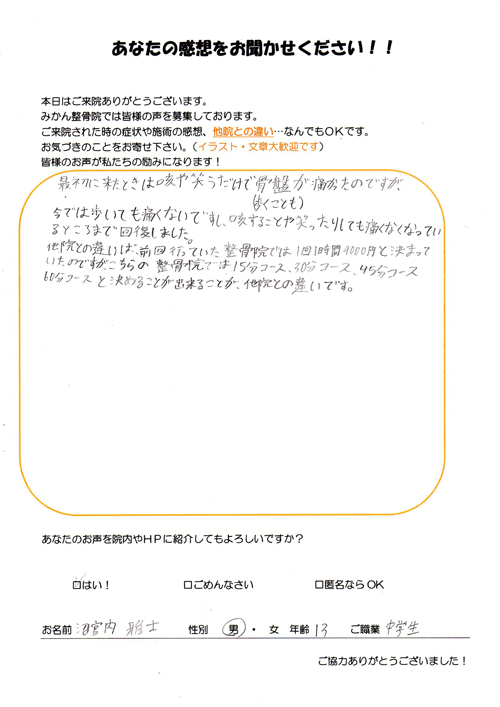 あなたの感想をお聞かせください！！
本日はご来院ありがとうございます。
みかん整骨院では皆様の声を募集しております。
ご来院された時の症状や施術の感想、他院との違い…なんでもOKです。
お気づきのことをお寄せ下さい。（イラスト・文章大歓迎です）
皆様のお声が私たちの励みになります！
最初に来たときは咳や笑うだけで骨盤が痛かったのですが、
(歩くことも)
今では歩いても痛くないですし、咳することや笑ったりしても痛くなくなってい
るところまで回復しました。
他院との違いは、前回行っていた整骨院では1回1時間4000円と決まって
いたのですがこちらの整骨院では15分コース、30分コース、45分コース
60分コースと決めることが出来ることが、他院との違いです。
あなたのお声を院内やＨＰに紹介してもよろしいですか？
□はい！ □ごめんなさい □匿名なら OK
お名前 宮内 雅士 性別 男 ・ 女 年齢 13 ご職業 中学生
ご協力ありがとうございました！